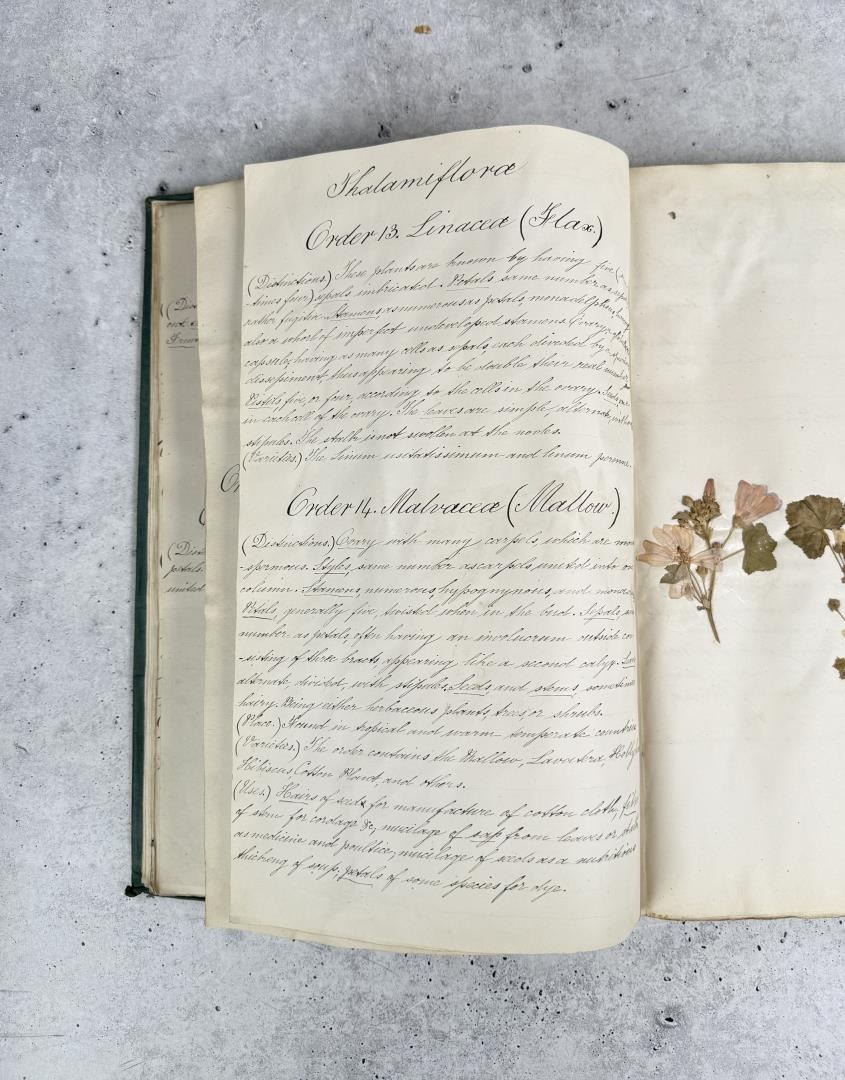 (Dist
not
Thalamifloræ
Order 13. Linaceæ (Flax.)
(Distinctions.) These plants are known by having five (
-times four) sepals imbricated. Petals same number as
rather fugitive. Stamens as numerous as petals, monadelphous,
also a whorl of imperfect undeveloped stamens. Ovary,
capsule, having as many cells as sepals, each divided by
dissepiment, thus appearing to be double their real number
Pistils, five, or four, according to the cells in the ovary. Seeds, one
in each cell of the ovary. The leaves are simple, alternate, without
stipules. The stalk is not swollen at the nodes.
(Varieties.) The Linum usitatissimum and linum perenne.
Order 14. Malvaceæ (Mallow.)
(Distinctions.) Ovary with many carpels, which are mon
-spermous. Styles, same number as carpels, united into one
column. Stamens, numerous, hypogynous, and
Petals, generally five, twisted when in the bud. Sepals,
number as petals, often having an involucrum outside con
-sisting of three bracts, appearing like a second calyx.
alternate, divided, with stipules. Seeds, and stems sometimes
hairy. Being either herbaceous plants, trees, or shrubs.
(Place.) Found in tropical and warm temperate countries
(Varieties.) The order contains the Mallow, Lavatera,
Hibiscus, Cotton Plant, and others.
(Uses.) Hairs of seeds for manufacture of cotton cloth,
of stem for cordage &c, mucilage of sap from leaves or
as medicine and poultice, mucilage of seeds as a nutritious
thickeng of soup, petals of some species for dye.
(Dist
petals.
united